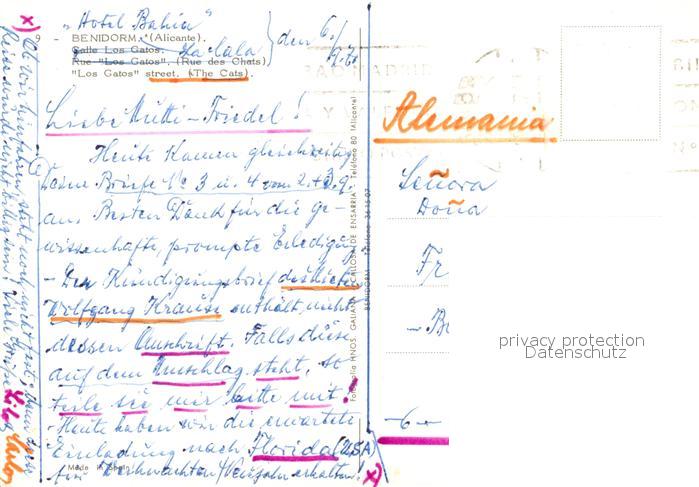 "Hotel Bahia"
9 - BENIDORM. (Alicante).
Calle Los Gatos. La Cala
Rue "Los Gatos", (Rue des Chats)
"Los Gatos" street, (The Cats).
den 6./9.70.
Liebe Mutti-Friedel!
Heute kamen gleichzeitig
Deine Briefe No 3 u. 4 vom 2. + 3.9.
an. Besten Dank für die ge-
wissenhafte, prompte Erledigung
- Der Kündigungsbrief des Mieters
Wolfgang Krause enthält nicht
dessen Anschrift. Falls diese
auf dem Umschlag steht, so
teile sie mir bitte mit!
- Heute haben wir die erwartete
Einladung nach Florida (USA)
für Weihnachten/Neujahr erhalten!
x)
Made in Spain
x) Ob wir hinfahren, steht noch nicht fest, denn die
Reise wird nicht billig sein! Viele Grüße
Fotografía HNOS. GALIANA CALLOSA DE ENSARRIA - Teléfono 80 (Alicante)
BENIDORM - Teléfono 36-15-07
Alemania
Señora
Doña
Fr
- 6 -
privacy protection
Datenschutz